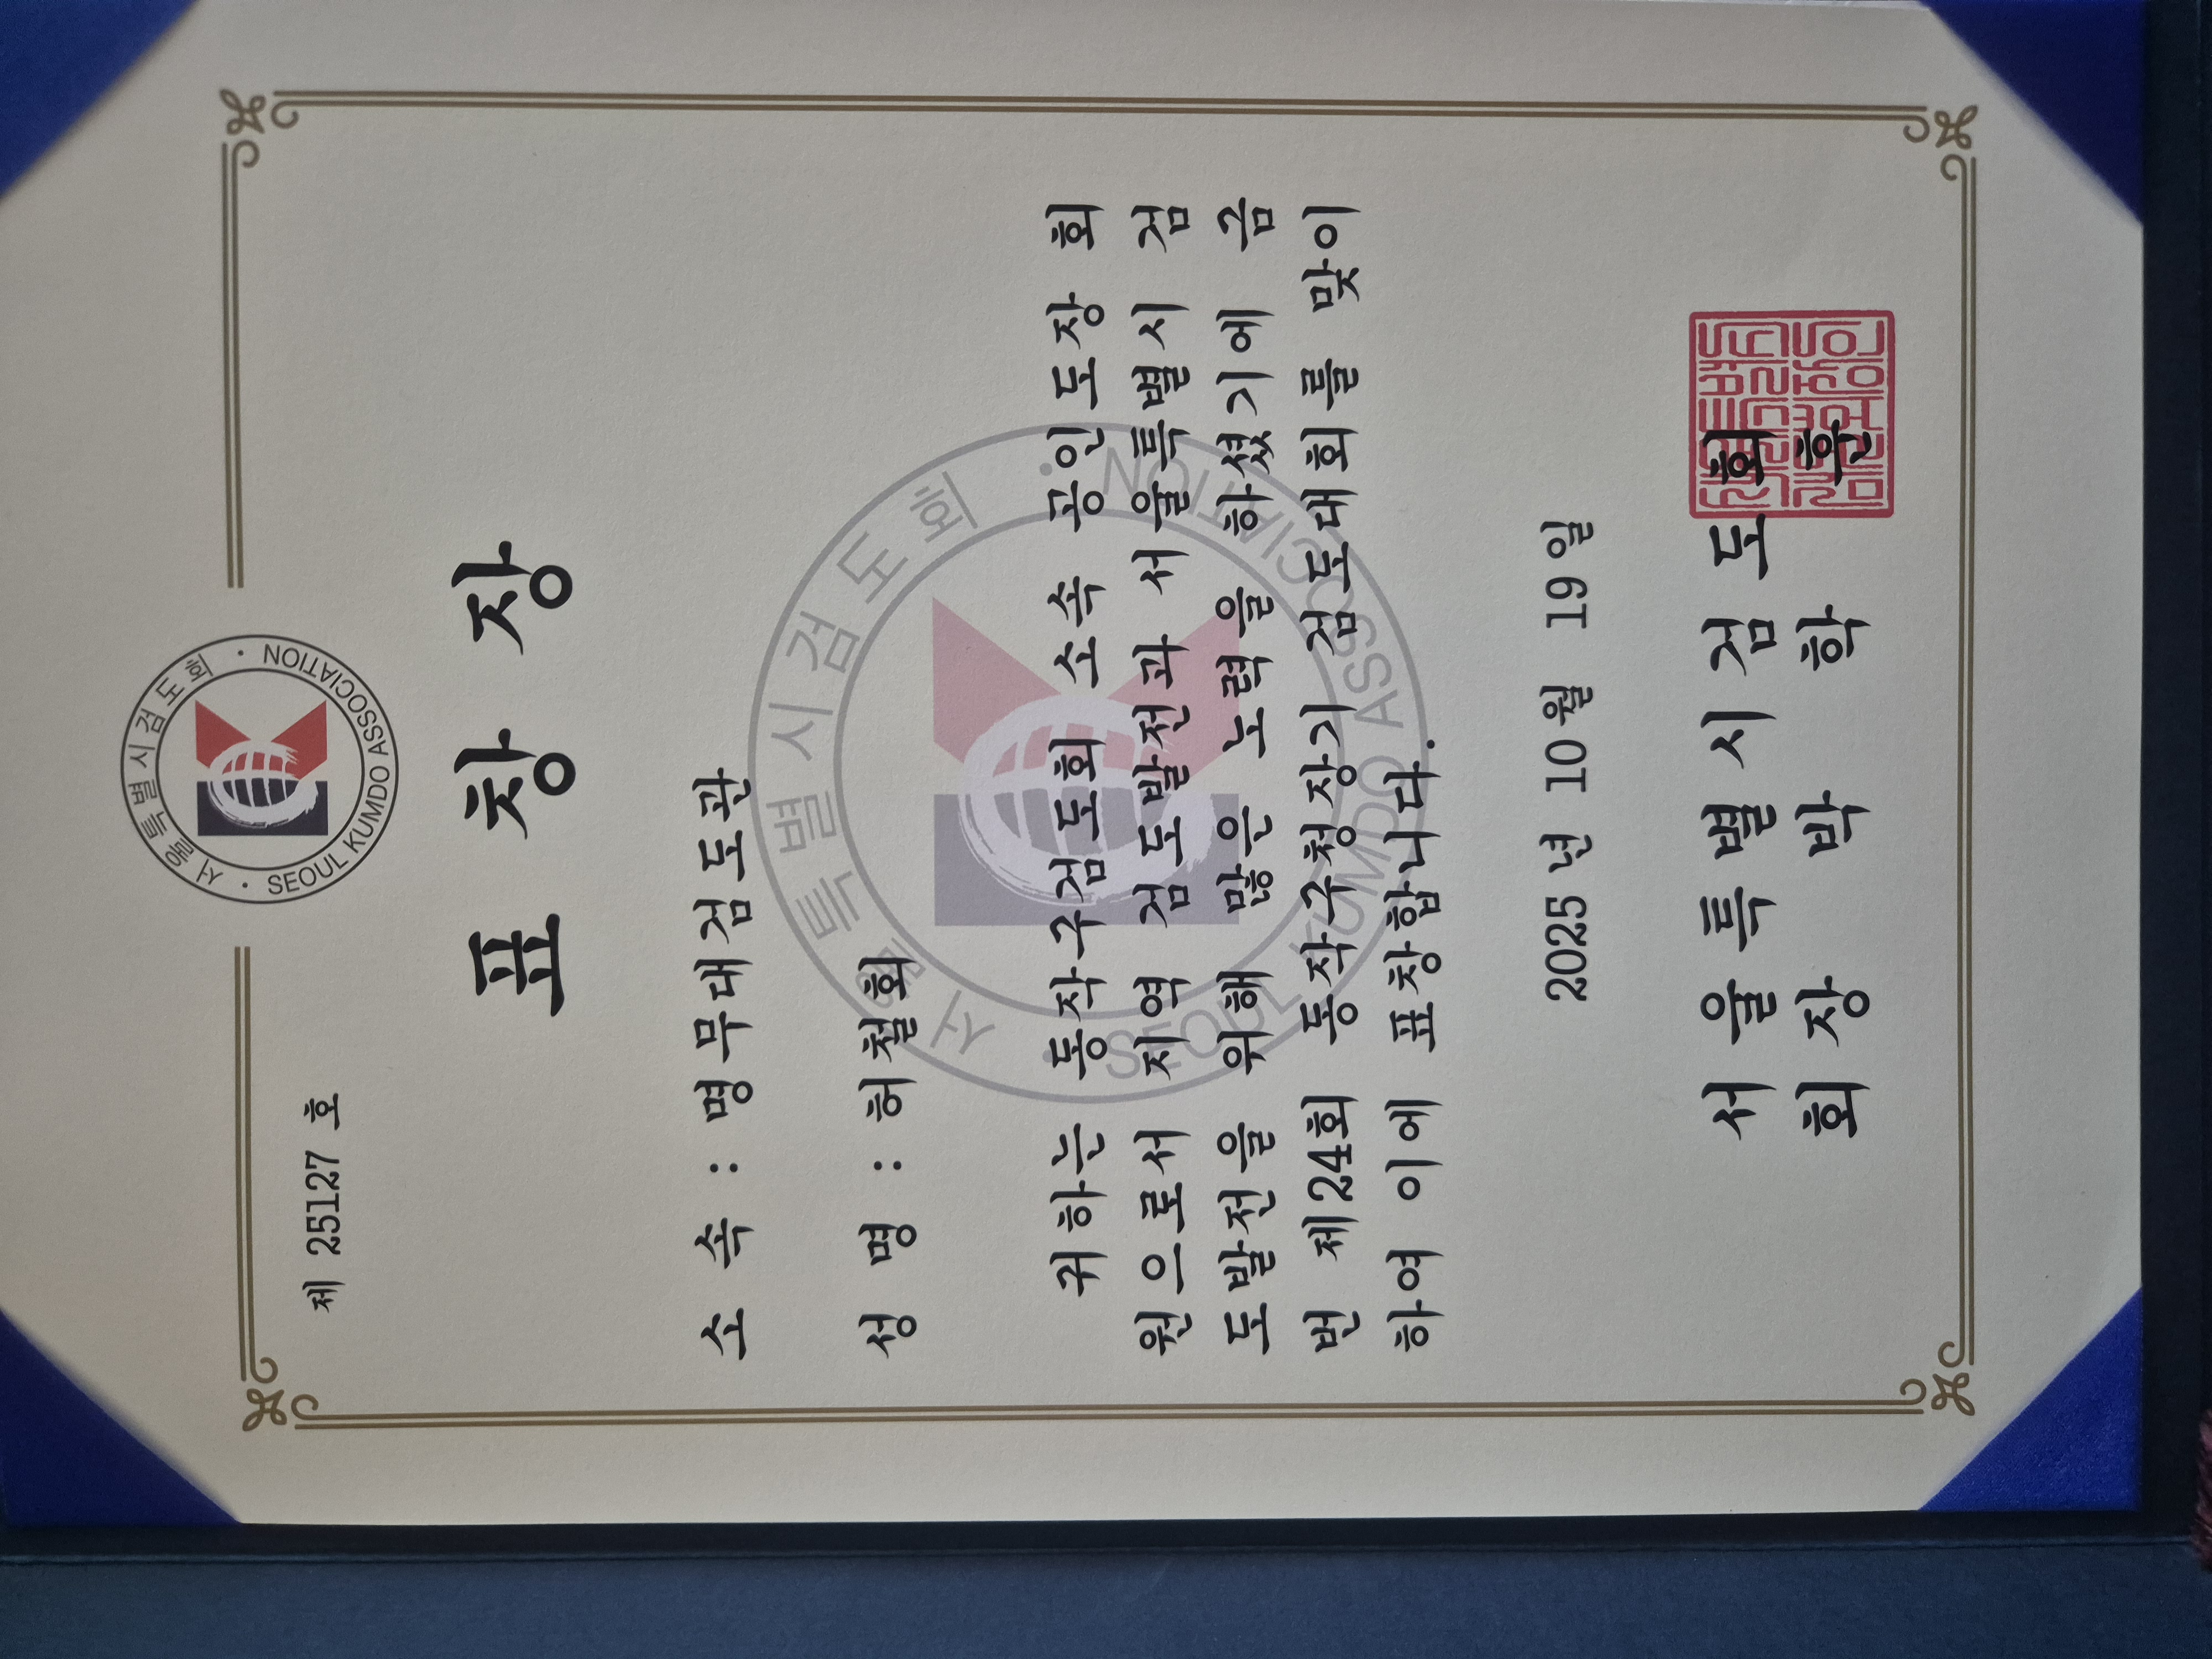 서울특별시검도회
SEOUL KUMDO ASSOCIATION
제 25127 호
표 창 장
소 속 : 명무대검도관
성 명 : 허철회
귀하는 동작구검도회 소속 공인도장 회
원으로서 지역 검도발전과 서울특별시 검
도발전을 위해 많은 노력을 하셨기에 금
번 제24회 동작구청장기 검도대회를 맞이
하여 이에 표창합니다.
서울특별시검도회
SEOUL KUMDO ASSOCIATION
2025년 10월 19일
서 울 특 별 시 검 도 회
회 장 박 학 훈